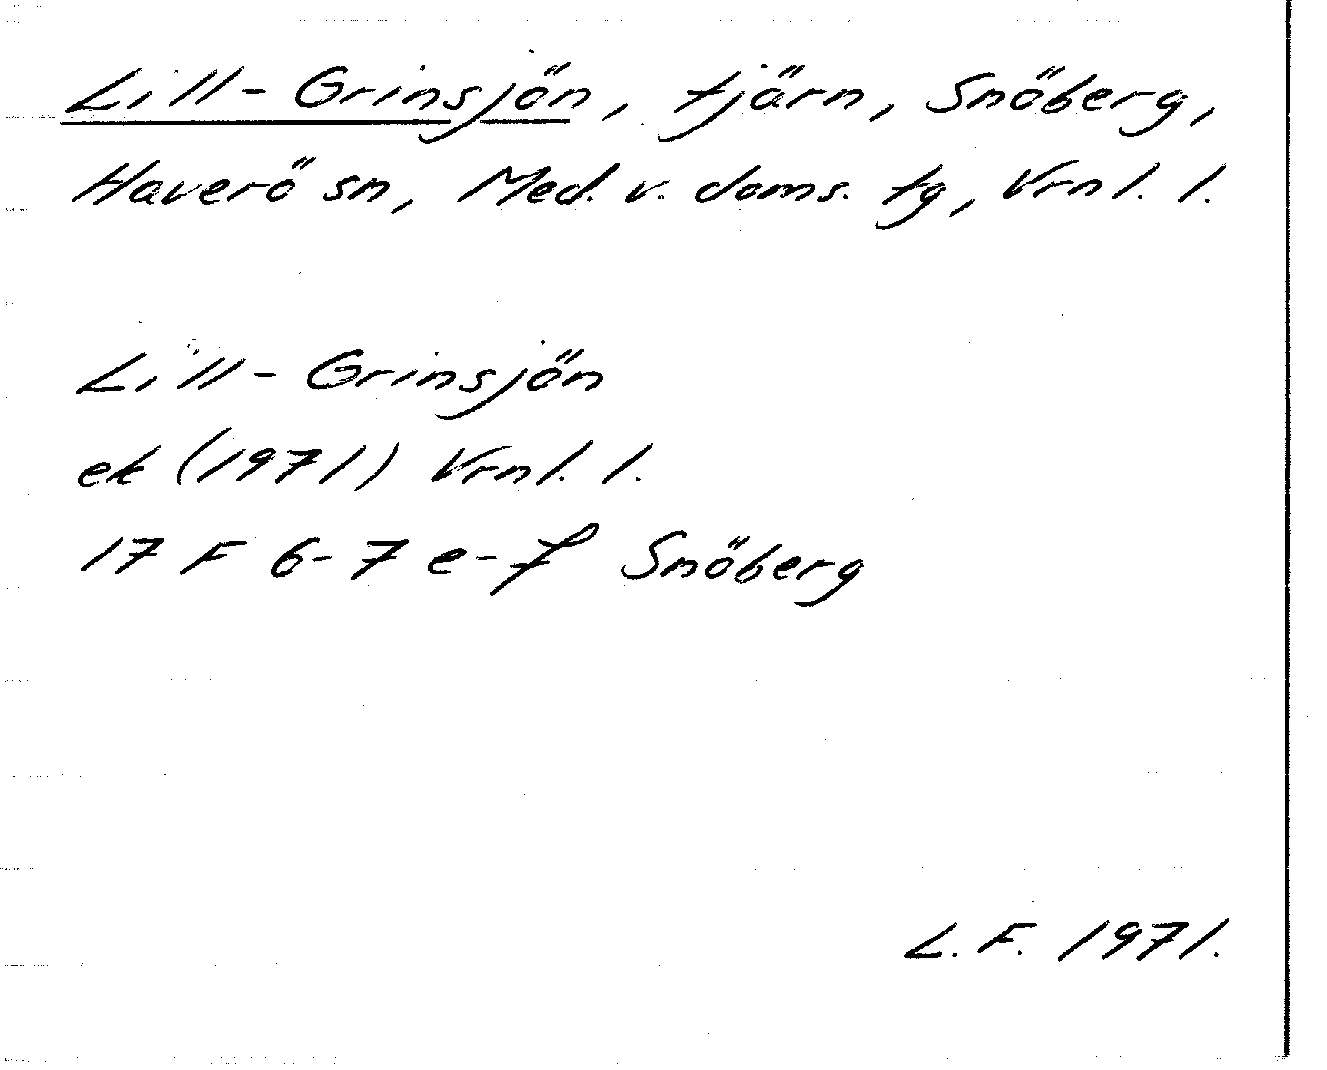 Lill-Grinsjön, tjärn, Snöberg,
Haverö sn, Med. v. doms. tg, Vrnl. l.
Lill-Grinsjön
ek (1971) Vrnl. l.
17 F 6-7 e-f Snöberg
L. F. 1971.